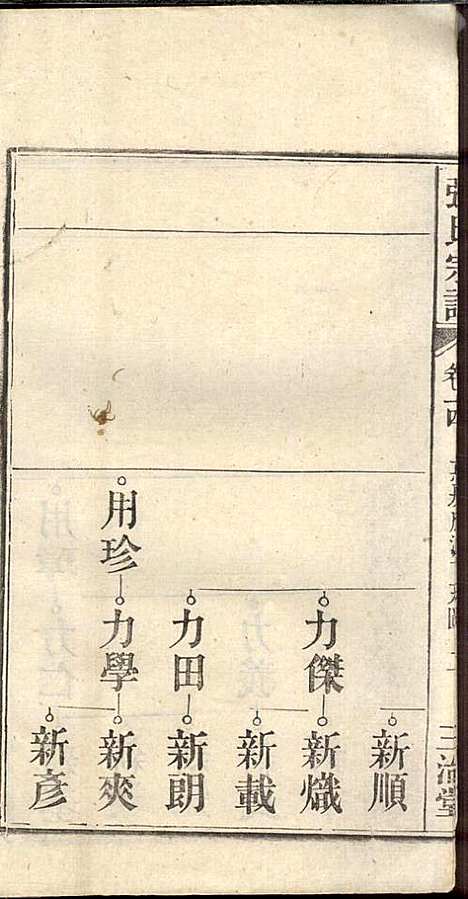 張氏宗譜
卷十四
三治堂
新順
力傑
新熾
新載
力田
新朗
用珍
力學
新爽
新彥